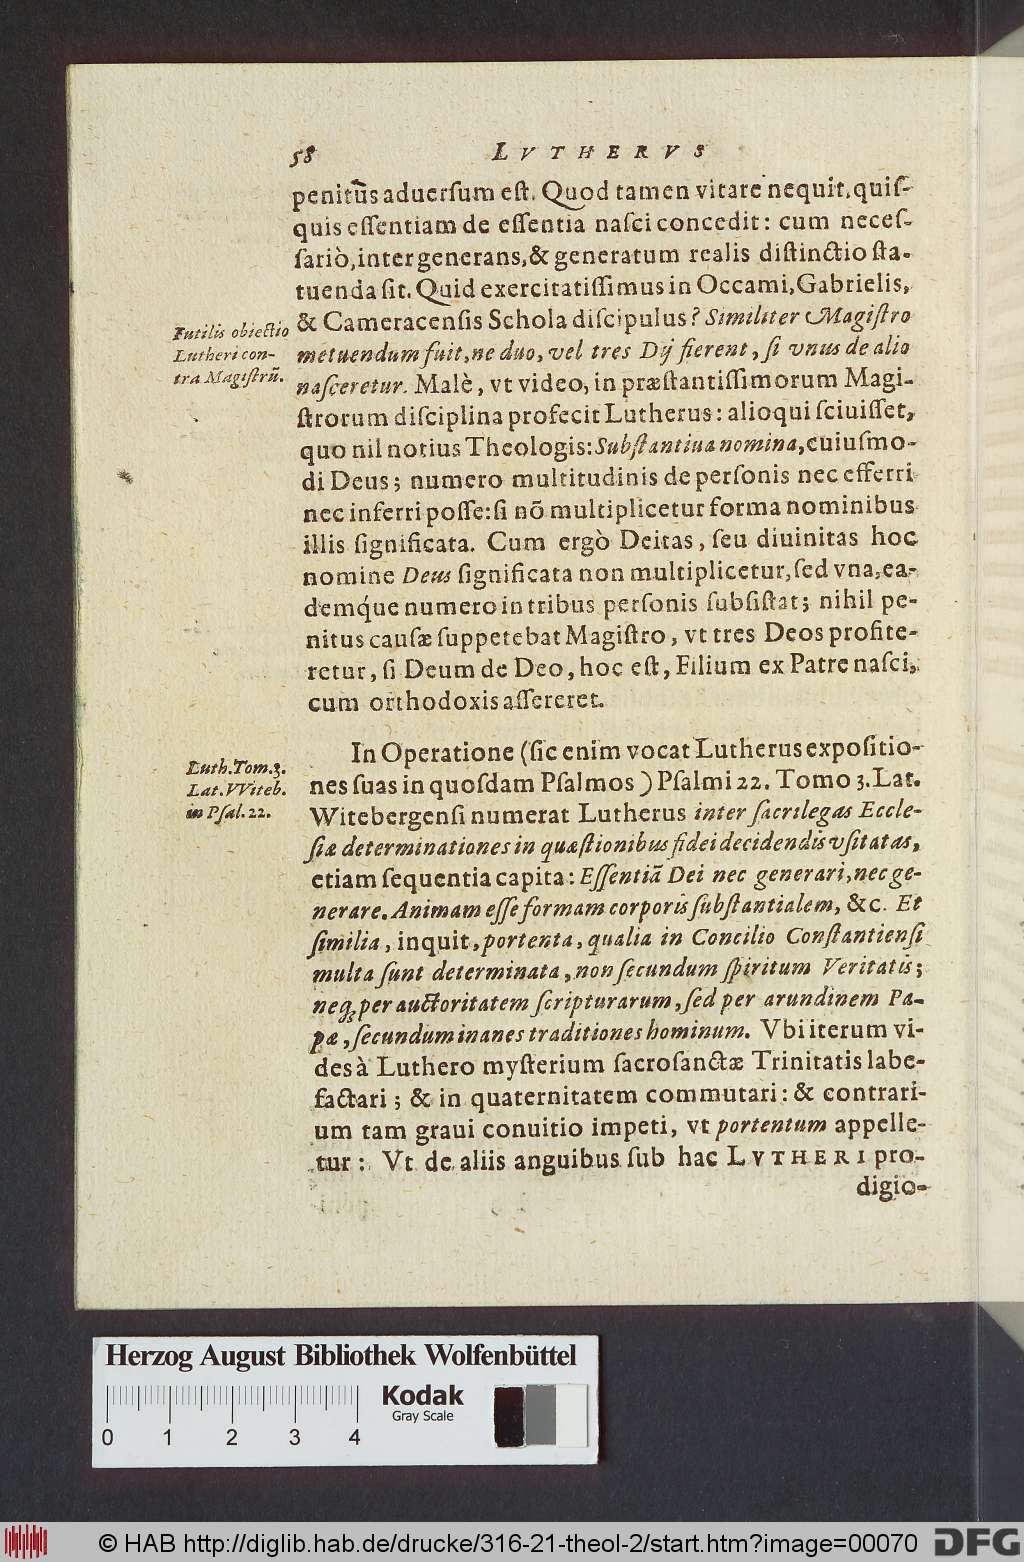 58 LVTHERVS
penitùs aduersum est. Quod tamen vitare nequit, quis-
quis essentiam de essentia nasci concedit: cum neces-
sariò, inter generans, & generatum realis distinctio sta-
tuenda sit. Quid exercitatissimus in Occami, Gabrielis,
& Cameracensis Schola discipulus? Similiter Magistro
metuendum fuit, ne duo, vel tres Dij fierent, si vnus de alio
nasceretur. Malè, vt video, in præstantissimorum Magi-
strorum disciplina profecit Lutherus: alioqui sciuisset,
quo nil notius Theologis: Substantiua nomina, cuiusmo-
di Deus; numero multitudinis de personis nec efferri
nec inferri posse: si nõ multiplicetur forma nominibus
illis significata. Cum ergò Deitas, seu diuinitas hoc
nomine Deus significata non multiplicetur, sed vna, ea-
demq́ue numero in tribus personis subsistat; nihil pe-
nitus causæ suppetebat Magistro, vt tres Deos profite-
retur, si Deum de Deo, hoc est, Filium ex Patre nasci,
cum orthodoxis assereret.
Futilis obiectio
Lutheri con-
tra Magistrũ.
In Operatione (sic enim vocat Lutherus expositio-
nes suas in quosdam Psalmos) Psalmi 22. Tomo 3. Lat.
Witebergensi numerat Lutherus inter sacrilegas Eccle-
siæ determinationes in quæstionibus fidei decidendis vsitatas,
etiam sequentia capita: Essentiã Dei nec generari, nec ge-
nerare. Animam esse formam corporis substantialem, &c. Et
similia, inquit, portenta, qualia in Concilio Constantiensi
multa sunt determinata, non secundum spiritum Veritatis;
neq; per auctoritatem scripturarum, sed per arundinem Pa-
pæ, secundum inanes traditiones hominum. Vbi iterum vi-
des à Luthero mysterium sacrosanctæ Trinitatis labe-
factari; & in quaternitatem commutari: & contrari-
um tam graui conuitio impeti, vt portentum appelle-
tur: Vt de aliis anguibus sub hac LVTHERI pro-
digio-
Luth. Tom. 3.
Lat. VViteb.
in Psal. 22.
Herzog August Bibliothek Wolfenbüttel
Kodak
Gray Scale
0 1 2 3 4
© HAB http://diglib.hab.de/drucke/316-21-theol-2/start.htm?image=00070
DFG